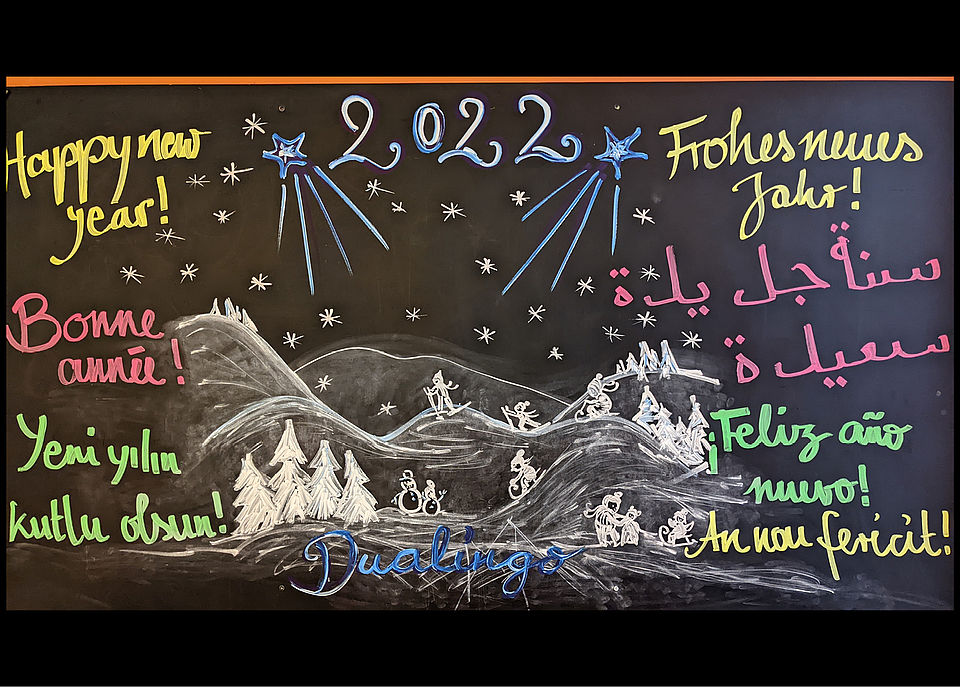 2022
Happy new
year!
Bonne
année!
Yeni yılın
kutlu olsun!
Frohes neues
Jahr!
سنة جديدة
سعيدة
¡Feliz año
nuevo!
An nou fericit!
Dualingo